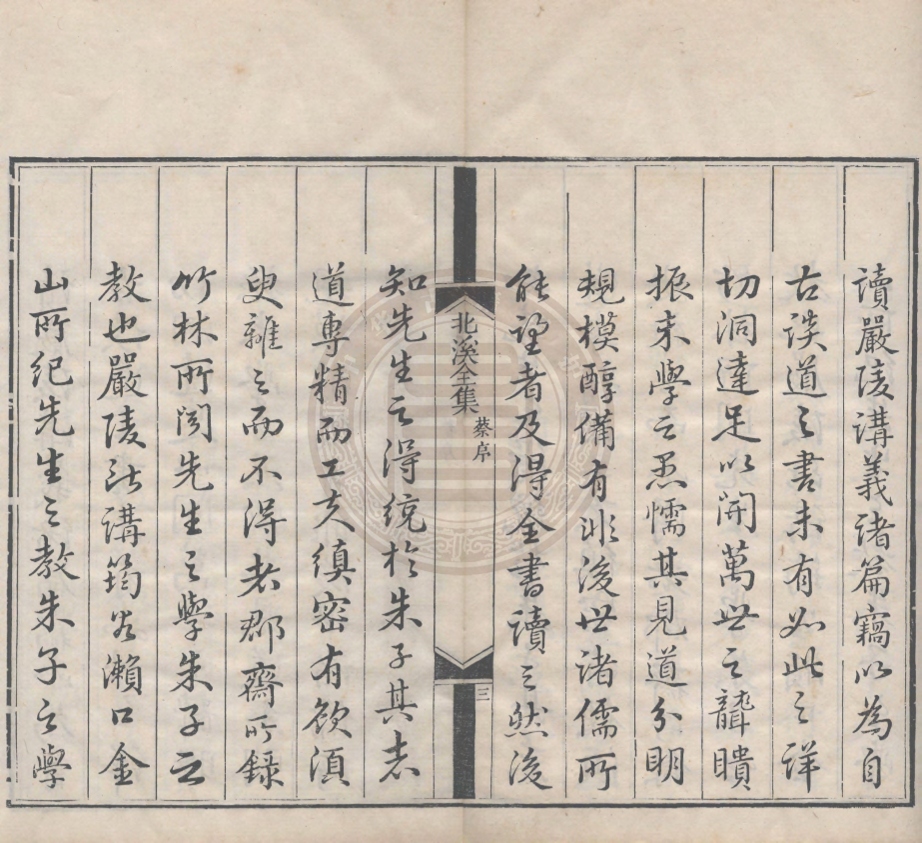 讀嚴陵講義諸篇竊以為自
古談道之書未有如此之詳
切洞達足以開萬世之聾瞶
振末學之愚懦其見道分明
規模醇備有非後世諸儒所
能望者及得全書讀之然後
北溪全集
蔡序
三
知先生之得統於朱子其志
道專精而工夫縝密有欲須
臾離之而不得者郡齋所錄
竹林所聞先生之學朱子之
教也嚴陵所講筠谷瀨口金
山所紀先生之教朱子之學